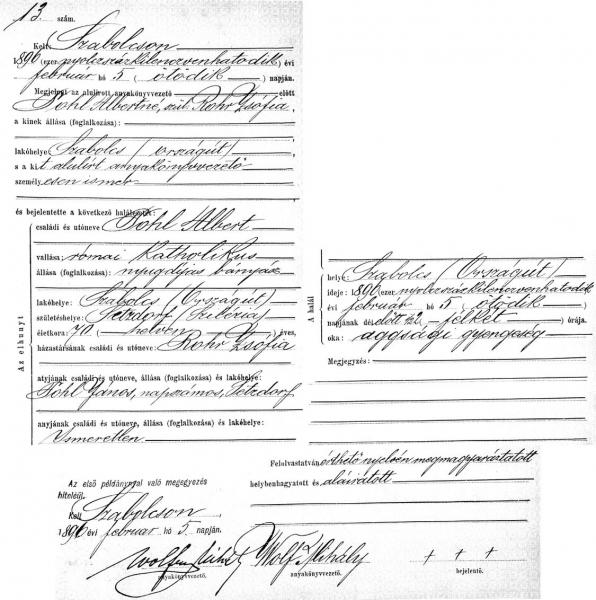 13. szám.
Kelt Szabolcson
1896 (ezer nyolczszázkilenczvenhatodik) évi
február hó 5 (ötödik) napján.
Megjelent az alulirott anyakönyvvezető előtt
Pohl Albertné, szül. Rohr Zsófia
a kinek állása (foglalkozása):
lakóhelye: Szabolcs (országút)
s a kit alulirt anyakönyvvezető
személyesen ismer
és bejelentette a következő halálesetet:
Az elhunyt
családi és utóneve Pohl Albert
vallása: római katholikus
állása (foglalkozása): nyugdíjas bányász
lakóhelye: Szabolcs (Országút)
születéshelye: Petzdorf
életkora: 70 hetven éves,
házastársának családi és utóneve: Rohr Zsófia
atyjának családi és utóneve, állása (foglalkozása) és lakóhelye:
Pohl János, napszámos, Petzdorf
anyjának családi és utóneve, állása (foglalkozása) és lakóhelye:
Ismeretlen
A halál
helye: Szabolcs (Országút)
ideje: 1896 (ezer nyolczszázkilenczvenhatodik)
évi február hó 5 (ötödik)
napjának dél előtt ½2 félkét órája.
oka: aggsági gyengeség
Megjegyzés:
Felolvastatván érthető nyelven megmagyaráztatott
helybenhagyatott és aláiratott
Az első példánnyal való megegyezés
hiteléül.
Kelt Szabolcson
1896 évi február hó 5. napján.
anyakönyvvezető.
Wolf Mihály
anyakönyvvezető.
+ + +
bejelentő.